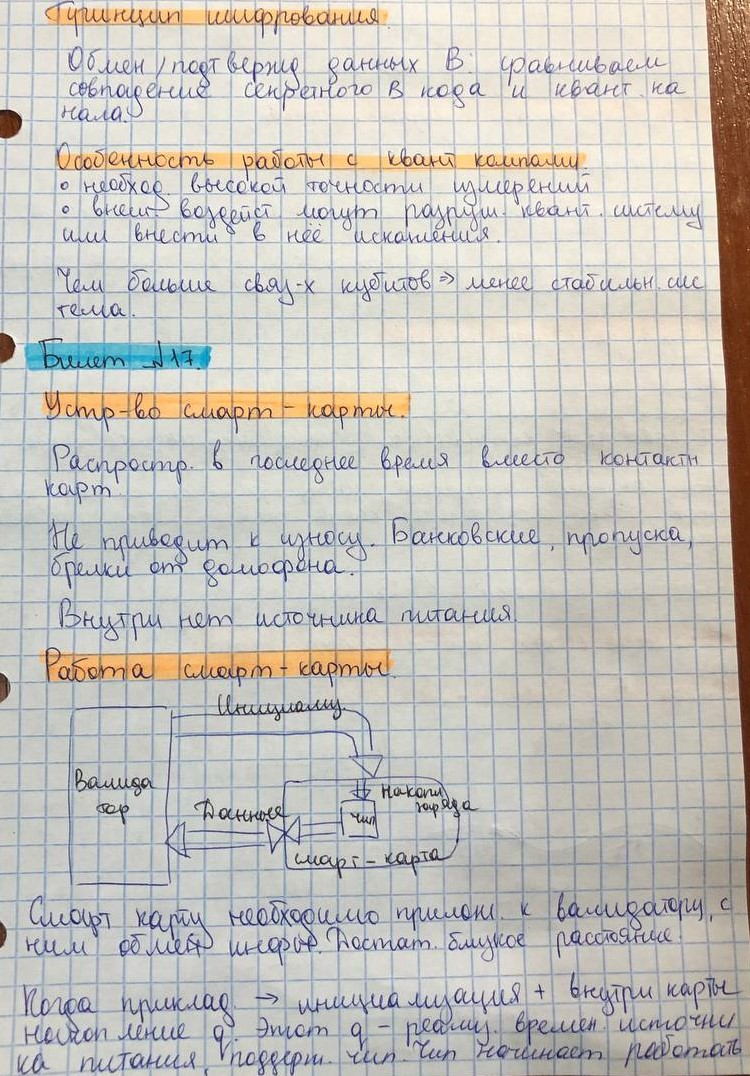 Принцип шифрования.
Обмен/подтвержд данных В. сравниваем
совпадение секретного В кода и квант. ка
нала.
Особенность работы с квант компами
• необход. высокой точности измерений
• внеш воздейст могут разруш. квант. систему
или внести в неё искажения.
Чем больше связ-х кубитов => менее стабильн. сис
тема.
Билет №17.
Устр-во смарт-карты.
Распростр. в последнее время вместо контактн
карт.
Не приводит к износу. Банковские, пропуска,
брелки от домофона.
Внутри нет источника питания.
Работа смарт-карты.
Инициализ.
Валида
тор
Данные
Накопл
заряда
чип
смарт-карта
Смарт карту необходимо прилож. к валидатору, с
ним обмен информ. Достат. близкое расстояние.
Когда приклад. → инициализация + внутри карты
накопление q. Этот q - реализ. времен. источни
ка питания, поддерж. чип. Чип начинает работать